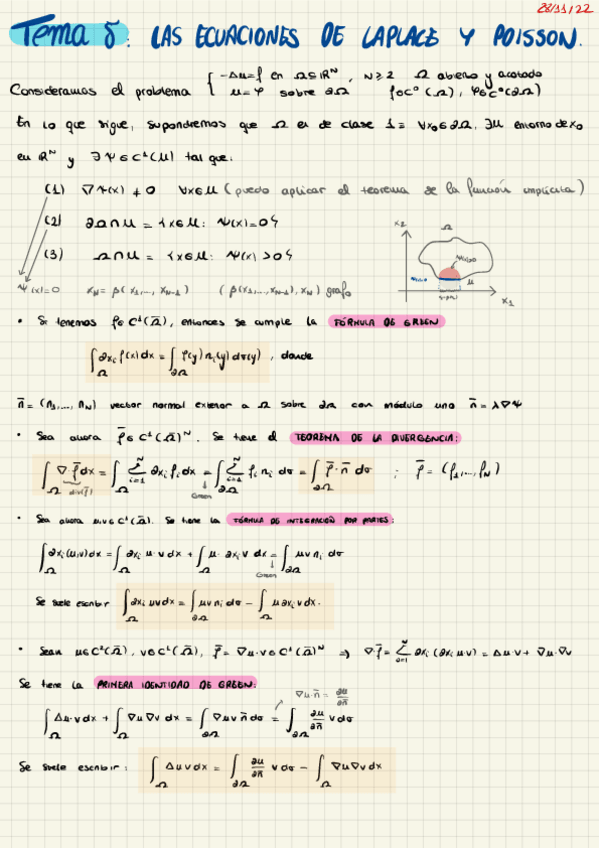 28/11/22
Tema 5: LAS ECUACIONES DE LAPLACE Y POISSON.
Consideramos el problema { -Δu=f en Ω⊆ℝᴺ, N≥2 Ω abierto y acotado
u=φ sobre ∂Ω f∈C⁰(Ω), φ∈C⁰(∂Ω)
En lo que sigue, supondremos que Ω es de clase 1 ≡ ∀x₀∈∂Ω, ∃U entorno de x₀
en ℝᴺ y ∃ψ∈C¹(U) tal que:
(1) ∇ψ(x) ≠ 0 ∀x∈U (puedo aplicar el teorema de la función implícita)
(2) ∂Ω∩U = {x∈U: ψ(x)=0}
(3) Ω∩U = {x∈U: ψ(x)>0}
ψ(x)=0 x_N = β(x₁,..., x_{N-1}) (β(x₁,...,x_{N-1}), x_N) grafo
x₂ Ω ψ(x)>0 U x₁
• Si tenemos f∈C¹(Ω̄), entonces se cumple la FÓRMULA DE GREEN
∫_Ω ∂x_i f(x)dx = ∫_∂Ω f(y)n_i(y)dσ(y), donde
n̄ = (n₁,..., n_N) vector normal exterior a Ω sobre ∂Ω con módulo uno n̄ = λ∇ψ
• Sea ahora f̄∈C¹(Ω̄)ᴺ. Se tiene el TEOREMA DE LA DIVERGENCIA:
∫_Ω ∇·f̄ dx = ∫_Ω Σ_{i=1}^N ∂x_i f_i dx = ∫_∂Ω Σ_{i=1}^N f_i n_i dσ = ∫_∂Ω f̄·n̄ dσ ; f̄ = (f₁,...,f_N)
div(f̄) Green
• Sea ahora u,v∈C¹(Ω̄). Se tiene la FÓRMULA DE INTEGRACIÓN POR PARTES:
∫_Ω ∂x_i(u,v)dx = ∫_Ω ∂x_i u·v dx + ∫_Ω u·∂x_i v dx = ∫_∂Ω uvn_i dσ
Green
Se suele escribir ∫_Ω ∂x_i u v dx = ∫_∂Ω uvn_i dσ - ∫_Ω u∂x_i v dx.
• Sean u∈C²(Ω̄), v∈C¹(Ω̄), f̄ = ∇u·v∈C¹(Ω̄)ᴺ ⇒ ∇·f̄ = Σ_{i=1}^N ∂x_i(∂x_i u·v) = Δu·v + ∇u·∇v
Se tiene la PRIMERA IDENTIDAD DE GREEN:
∇u·n̄ = ∂u/∂n̄
∫_Ω Δu·v dx + ∫_Ω ∇u∇v dx = ∫_∂Ω ∇uv n̄ dσ = ∫_∂Ω ∂u/∂n̄ v dσ
Se suele escribir: ∫_Ω Δu v dx = ∫_∂Ω ∂u/∂n̄ v dσ - ∫_Ω ∇u∇v dx